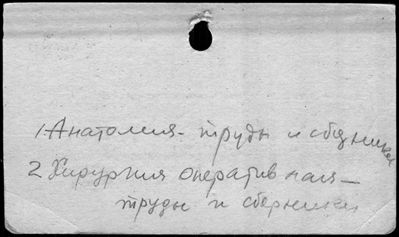 1. Анатомия - труды и сборники
2 Хирургия оперативная —
труды и сборники